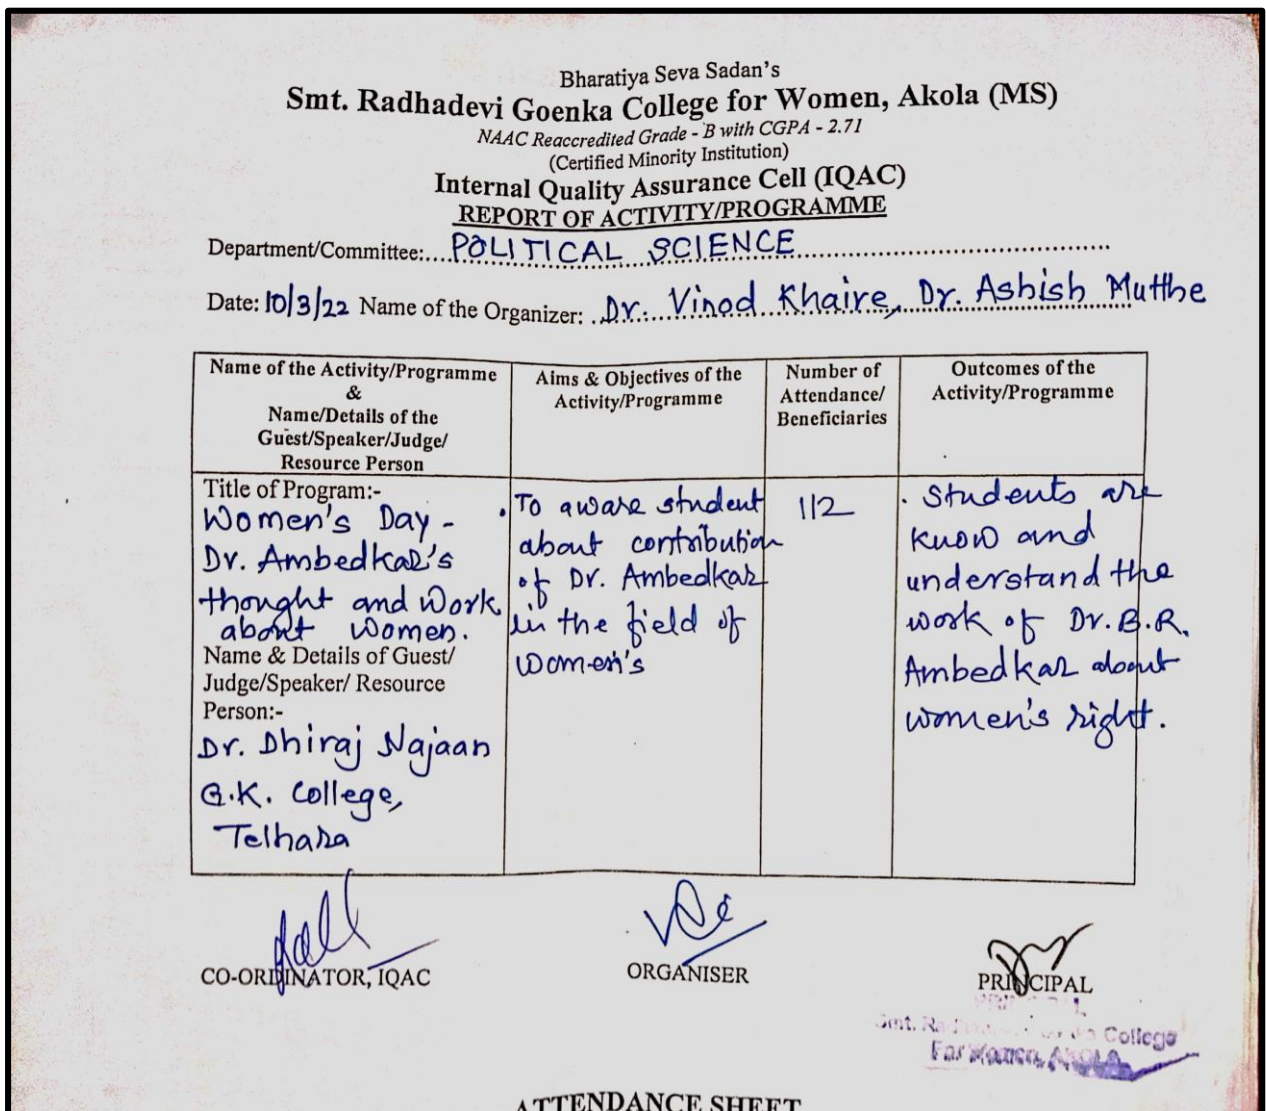 Bharatiya Seva Sadan's
Smt. Radhadevi Goenka College for Women, Akola (MS)
NAAC Reaccredited Grade - B with CGPA - 2.71
(Certified Minority Institution)
Internal Quality Assurance Cell (IQAC)
REPORT OF ACTIVITY/PROGRAMME
Department/Committee:....POLITICAL SCIENCE
Date: 10/3/22 Name of the Organizer: ..Dr. Vinod Khaire, Dr. Ashish Mutthe
Name of the Activity/Programme
&
Name/Details of the
Guest/Speaker/Judge/
Resource Person
Aims & Objectives of the
Activity/Programme
Number of
Attendance/
Beneficiaries
Outcomes of the
Activity/Programme
Title of Program:-
Women's Day -
Dr. Ambedkar's
thought and work
about women.
Name & Details of Guest/
Judge/Speaker/ Resource
Person:-
Dr. Dhiraj Najaan
G.K. College,
Telhara
. To aware student
about contribution
of Dr. Ambedkar
in the field of
women's
112
. Students are
know and
understand the
work of Dr. B.R.
Ambedkar about
women's right.
CO-ORDINATOR, IQAC
ORGANISER
PRINCIPAL
PRINCIPAL
Smt. College
For Women, AKOLA
ATTENDANCE SHEET